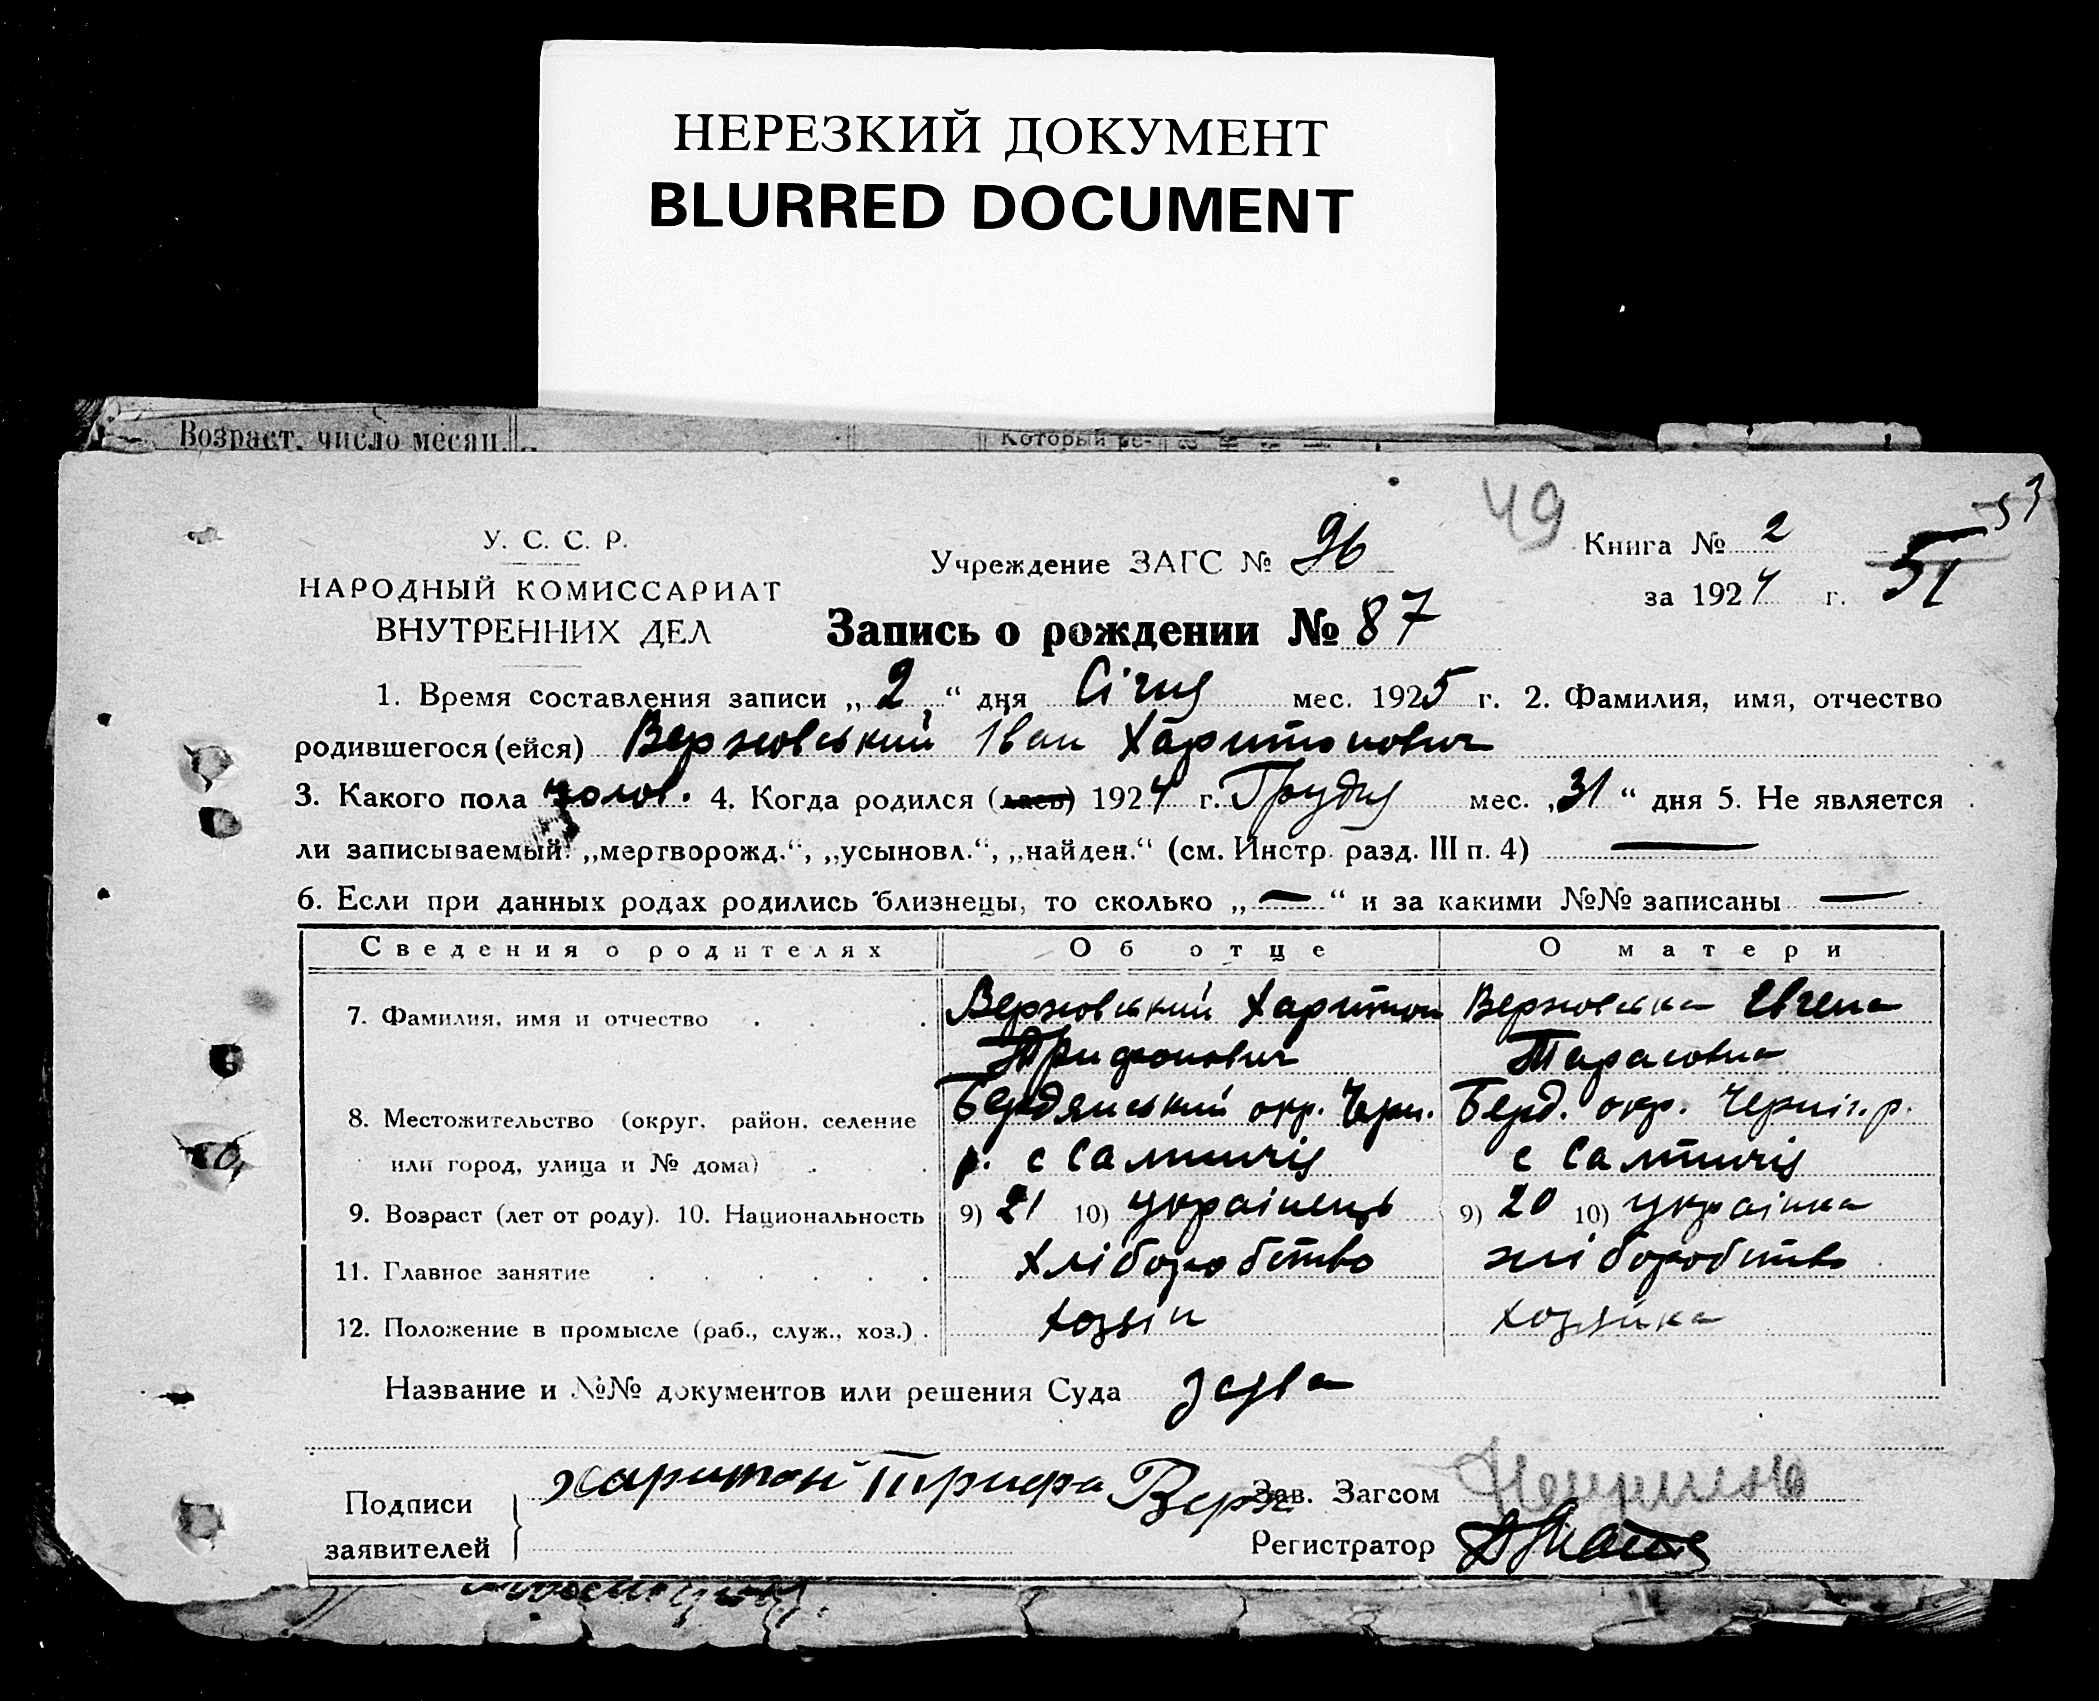 НЕРЕЗКИЙ ДОКУМЕНТ
BLURRED DOCUMENT
Возраст, число месяц.
Который ре-
49
У. С. С. Р.
НАРОДНЫЙ КОМИССАРИАТ
ВНУТРЕННИХ ДЕЛ
Учреждение ЗАГС № 96
Книга № 2
за 1924 г.
51
Запись о рождении № 87
1. Время составления записи „2“ дня Січня мес. 1925 г. 2. Фамилия, имя, отчество
родившегося (ейся) Верховський Іван Харитонович
3. Какого пола чолов. 4. Когда родился (лась) 1924 г. Грудня мес. „31“ дня 5. Не является
ли записываемый: „мертворожд.“, „усыновл.“, „найден.“ (см. Инстр. разд. III п. 4) —
6. Если при данных родах родились близнецы, то сколько „—“ и за какими №№ записаны —
Сведения о родителях Об отце О матери
7. Фамилия, имя и отчество . . Верховський Харитон Верховська Євгена
Трифонович Тарасовна
8. Местожительство (округ, район, селение Бердянський окр. Черн. Берд. окр. Черніг. р.
или город, улица и № дома) . . р. с Салтичія с Салтичія
9. Возраст (лет от роду). 10. Национальность 9) 21 10) українець 9) 20 10) українка
11. Главное занятие . . . . . . Хліборобство хліборобство
12. Положение в промысле (раб., служ., хоз.) . хозяін хозяйка
Название и №№ документов или решения Суда заява
Подписи
заявителей
харитон Трифо Верх
Зав. Загсом
Регистратор